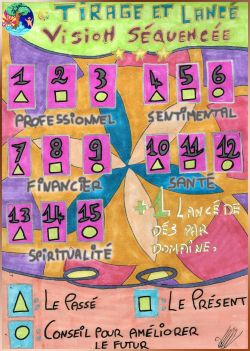 TIRAGE ET LANCÉ
VISION SÉQUENCÉE
1 2 3 4 5 6
PROFESSIONNEL SENTIMENTAL
7 8 9 10 11 12
FINANCIER SANTÉ
13 14 15
SPIRITUALITÉ
+ 1 LANCÉ DE
DÉS PAR
DOMAINE.
LE PASSÉ LE PRÉSENT
CONSEIL POUR AMÉLIORER
LE FUTUR